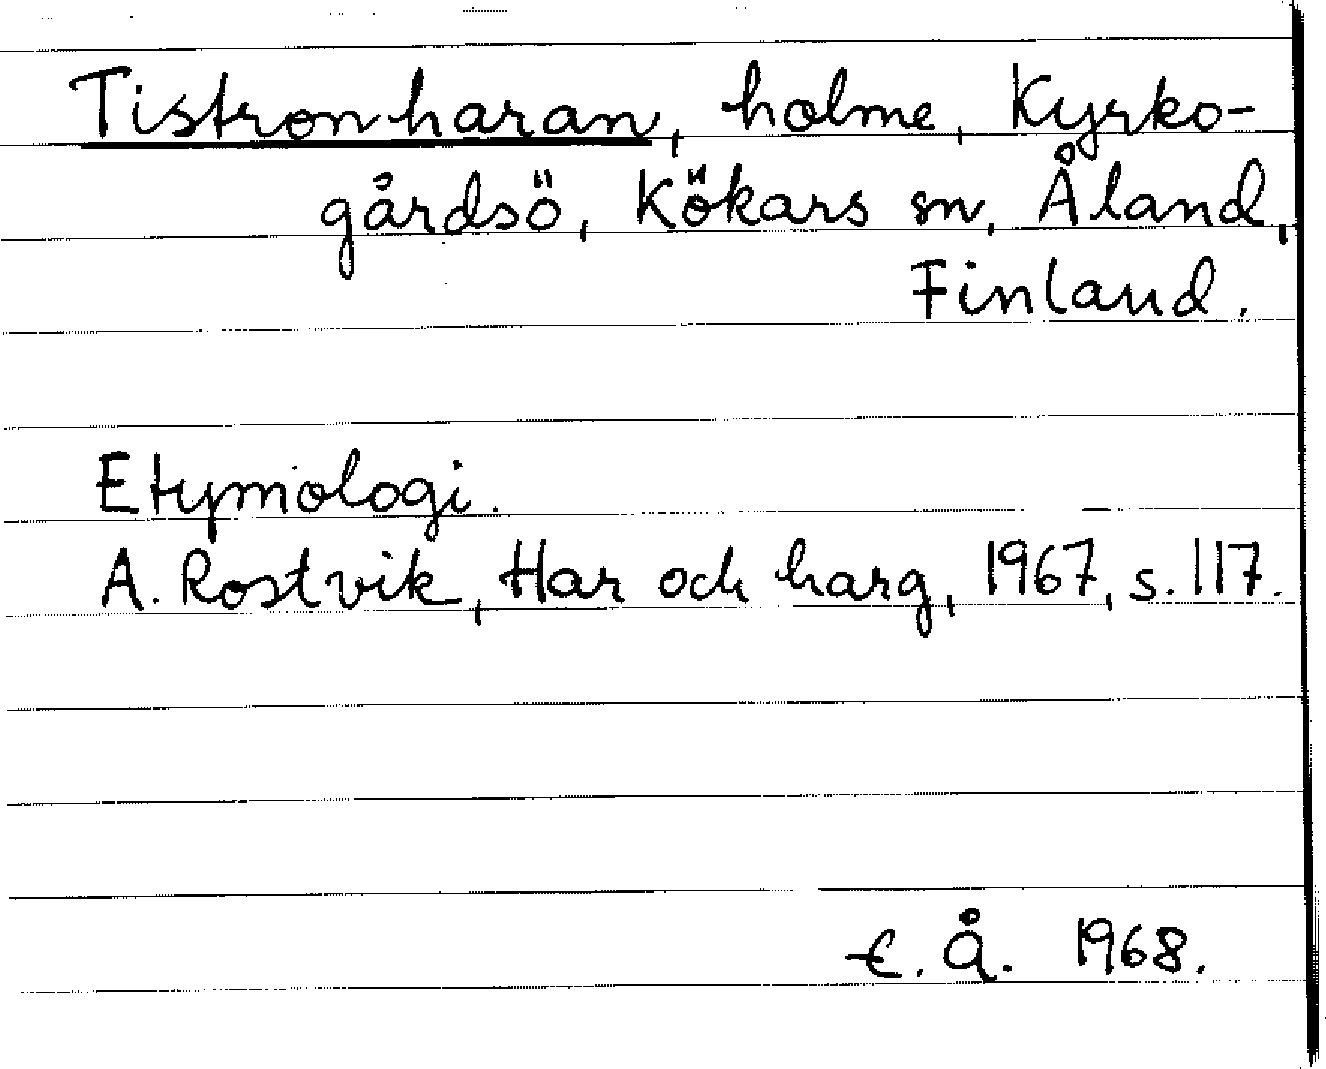 Tistronharan, holme, Kyrko-
gårdsö, Kökars sn, Åland,
Finland.
Etymologi.
A. Rostvik, Har och harg, 1967, s. 117.
E. Å. 1968.